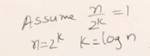 Assume n/2^k = 1
n=2^k k=log n